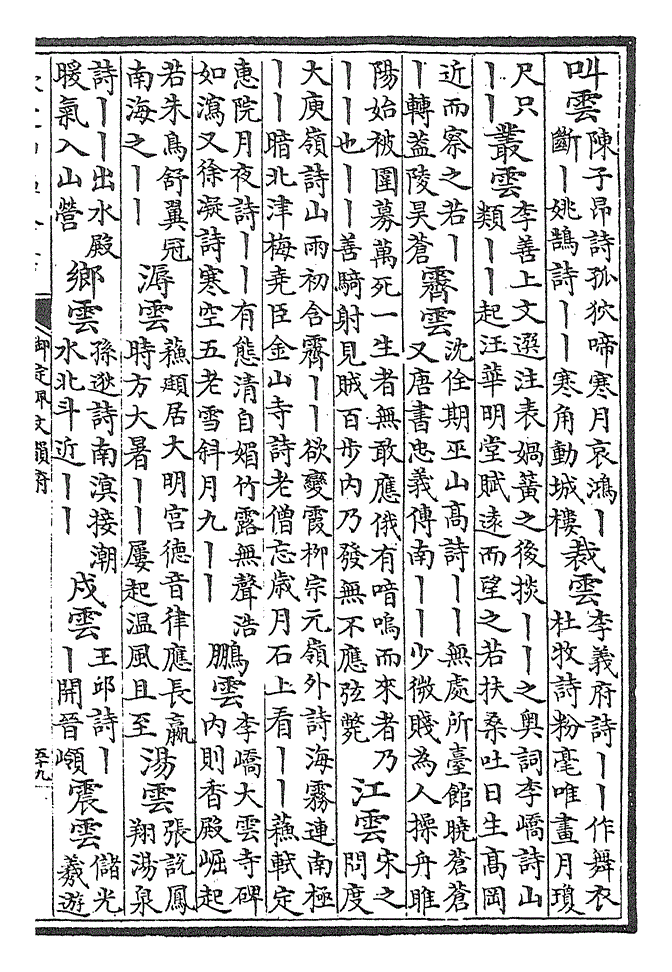 叫雲
陳子昂詩孤狖啼寒月哀鴻丨
斷丨姚鵠詩丨丨寒角動城樓
裁雲
李義府詩丨丨作舞衣
杜牧詩粉毫唯畫月瓊
尺只
丨丨
叢雲
李善上文選注表媧簧之後掞丨丨之奧詞李嶠詩山
類丨丨起汪華明堂賦遠而望之若扶桑吐日生高岡
近而察之若丨
丨轉蓋陵昊蒼
霽雲
沈佺期巫山高詩丨丨無處所臺館曉蒼蒼
又唐書忠義傳南丨丨少微賤為人操舟雎
陽始被圍募萬死一生者無敢應俄有喑嗚而來者乃
丨丨也丨丨善騎射見賊百步內乃發無不應弦斃
江雲
宋之
問度
大庾嶺詩山雨初含霽丨丨欲變霞柳宗元嶺外詩海霧連南極
丨丨暗北津梅堯臣金山寺詩老僧忘歲月石上看丨丨蘇軾定
惠院月夜詩丨丨有態清自媚竹露無聲浩
如瀉又徐凝詩寒空五老雪斜月九丨丨
鵬雲
李嶠大雲寺碑
內則香殿崛起
若朱鳥舒翼冠
南海之丨丨
溽雲
蘇頲居大明宮德音律應長嬴
時方大暑丨丨屢起溫風且至
湯雲
張說鳳
翔湯泉
詩丨丨出水殿
暖氣入山營
鄉雲
孫逖詩南溟接潮
水北斗近丨丨
戍雲
王邱詩丨
丨開晉嶺
震雲
儲光
羲遊
御定佩文韻府